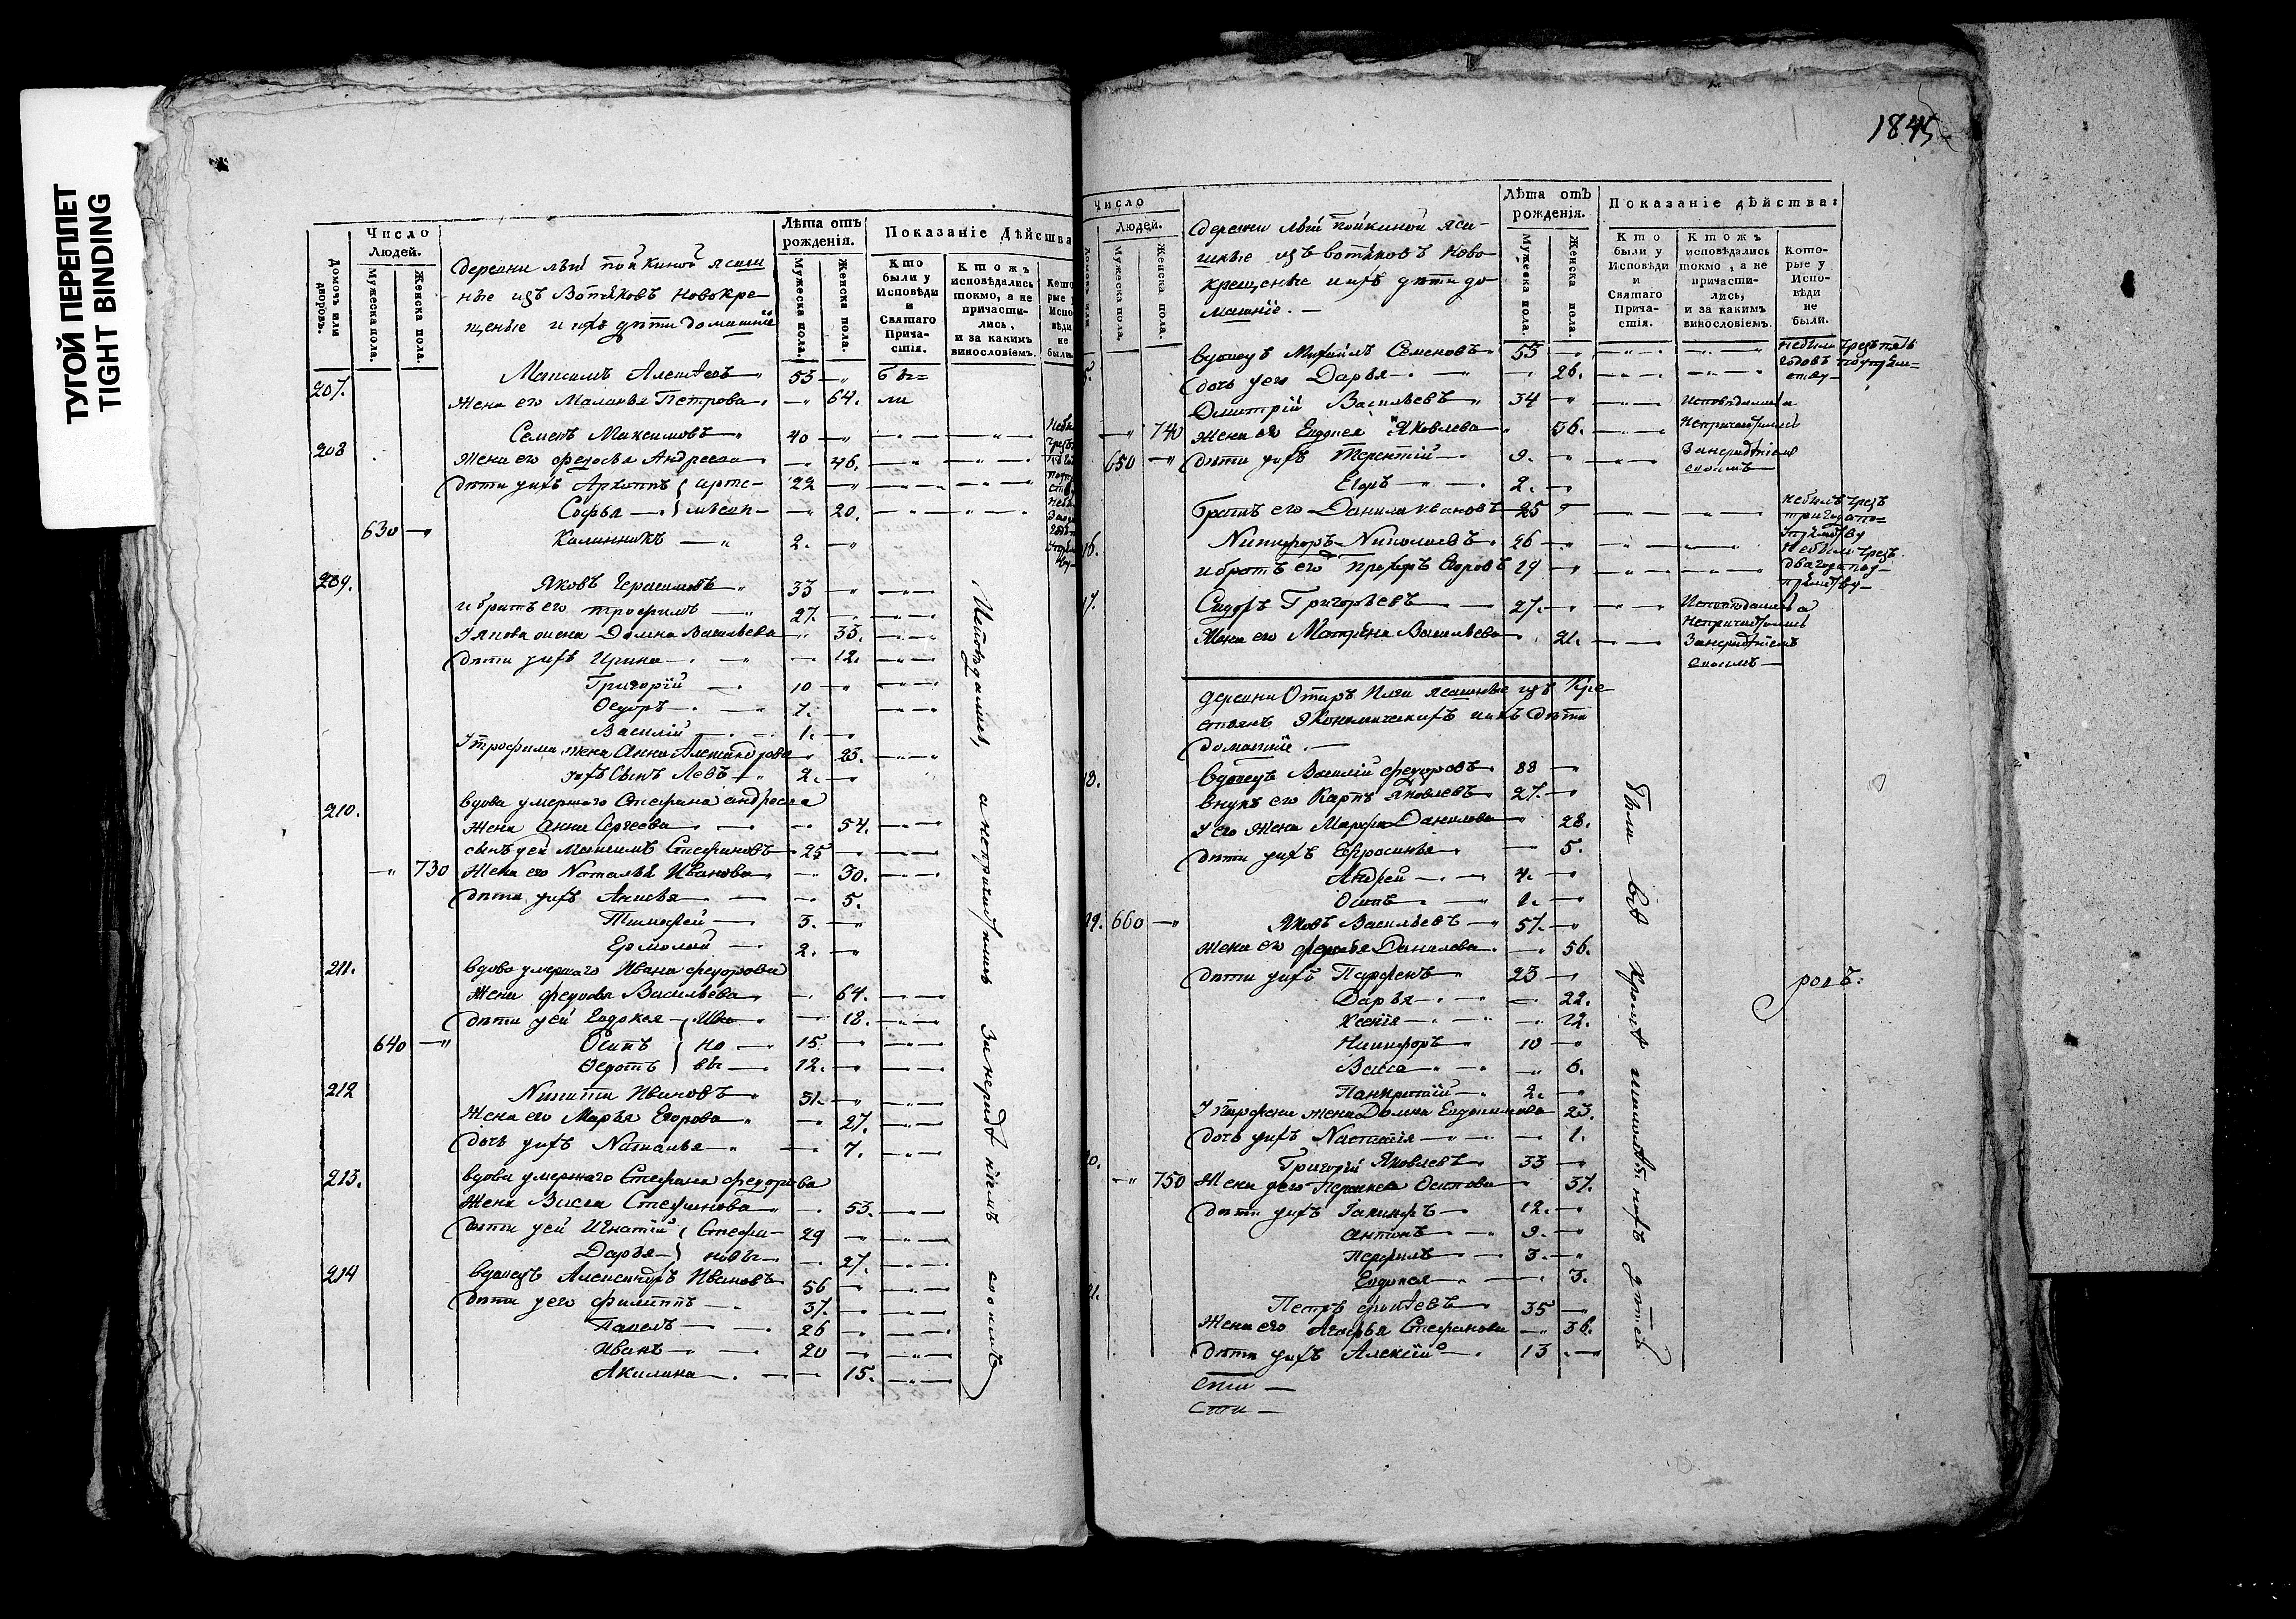 ТУГОЙ ПЕРЕПЛЕТ
TIGHT BINDING
Число
Людей.
Домочъ или дворовъ.
Мужеска пола.
Женска пола.
Лѣта отъ рожденія.
Мужеска пола.
Женска пола.
Показаніе Дѣйства
Кто были у Исповѣди и Святаго Прича-стія.
Ктожъ исповѣдались токмо, а не причасти-лись, и за какимъ винословіемъ.
деревни
ные изъ Вотяковъ новокре-
щеные и ихъ дѣти домашніе
207. Максимъ Алексѣевъ 55 бы=
Жена его Маланья Петрова 64. ли
208 Семенъ Максимовъ 40
Жена его Федосья Андреева 46.
дѣти ихъ Архиппъ 22
Софья 20.
630 Калинникъ 2.
209. Яковъ Герасимовъ 33
и братъ его Трофимъ 27.
У Якова жена Домна Васильева 33.
дѣти ихъ Ирина 12.
Григорій 10
Ѳедоръ 7.
Василій 1.
У Трофима жена Анна Александрова 23.
ихъ сынъ Левъ 2.
210. вдова умершаго Стефана Андреева
жена Анна Сергеева 54.
сынъ у ей Максимъ Стефановъ 25
730 Жена его Наталья Иванова 30.
дѣти ихъ Анисья 5.
Тимофей 3.
Ермолай 2.
211. вдова умершаго Ивана Федорова
жена Федосья Васильева 64.
дѣти у ей Евдокея Ива 18.
640 Осипъ но 15
Ѳедотъ вы 12.
212 Никита Ивановъ 31.
Жена его Марья Егорова 27.
дочь у ихъ Наталья 7.
213. вдова умершаго Стефана Федорова
жена Васса Стефанова 53.
дѣти у ей Игнатій Стефа- 29
Дарья новы 27.
214 вдовецъ Александръ Ивановъ 56
дѣти у его Филиппъ 37.
Павелъ 26
Иванъ 20
Акилина 15.
Исповѣдались, а непричастились за нерадѣніемъ своимъ
1845
Число
Людей.
Мужеска пола.
Женска пола.
Лѣта отъ рожденія.
Мужеска пола.
Женска пола.
Показаніе дѣйства:
Кто были у Исповѣди и Святаго Прича-стія.
Ктожъ исповѣдались токмо, а не причасти-лись, и за какимъ винословіемъ.
Кото-рые у Испо-вѣди не были.
деревни
шные изъ вотяковъ Ново
крещеные и ихъ дѣти до
машніе.
вдовецъ Михайлъ Семеновъ 53 небыли чрезъ пять
дочь у его Дарья 26. годовъ
Дмитрій Васильевъ 34 исповѣдались а
740 жена его Евдокея Яковлева 36. непричастились
650 дѣти у ихъ Терентій 9. за нерадѣніемъ
Егоръ 2. своимъ
братъ его Данила Ивановъ 25 небылъ чрезъ
три года по=
Никифоръ Николаевъ 26 небыли чрезъ
и братъ его Прохоръ Егоровъ 29 два года по
Сидоръ Григорьевъ 27. Исповѣдались а
Жена его Матрена Васильева 21. непричастились
за нерадѣніемъ
своимъ
деревни ясашные изъ Кре
стьянъ Экономическихъ и ихъ дѣти
домашніе.
вдовецъ Василій Федоровъ 88
внукъ его Карпъ Яковлевъ 27.
У его жена Марфа Данилова 28.
дѣти у ихъ Ефросинья 5.
Андрей 4.
Осипъ
660 Яковъ Васильевъ 57.
жена его Федосья Данилова 56.
дѣти у ихъ Парфенъ 23
Дарья 22.
Ксенія
Никифоръ 10
Васса 6.
Панкратій 2.
У Парфена жена Домна Евдокимова 23.
дочь у ихъ Настасія 1.
Григорій Яковлевъ 33
750 Жена у его Осипова 37.
дѣти у ихъ Іакинфъ 12.
Антонъ 9.
Перфилъ 3.
Евдокея 3.
Петръ 35
Жена его Агафья Стефанова 36.
дѣти у ихъ Алексій 13
Были всѣ кромѣ малолѣтныхъ дѣтей